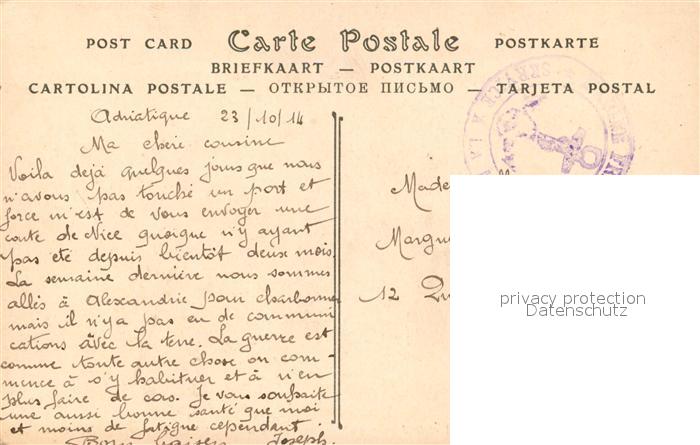 POST CARD Carte Postale POSTKARTE
BRIEFKAART — POSTKAART
CARTOLINA POSTALE — ОТКРЫТОЕ ПИСЬМО — TARJETA POSTAL
Adriatique 23/10/14
Ma chère cousine
Voila dejà quelques jours que nous
n'avons pas touché un port et
force m'est de vous envoyer une
carte de Nice quoique n'y ayant
pas eté depuis bientôt deux mois.
La semaine dernière nous sommes
allés à Alexandrie pour charbonner
mais il n'y a pas eu de communi
cations avec la terre. La guerre est
comme toute autre chose on com-
mence à s'y habituer et à n'en
plus faire de cas. Je vous souhaite
une aussi bonne santé que moi
et moins de fatigue cependant.
Bons baisers Joseph.
Made
Margue
12
SERVICE A LA
privacy protection
Datenschutz